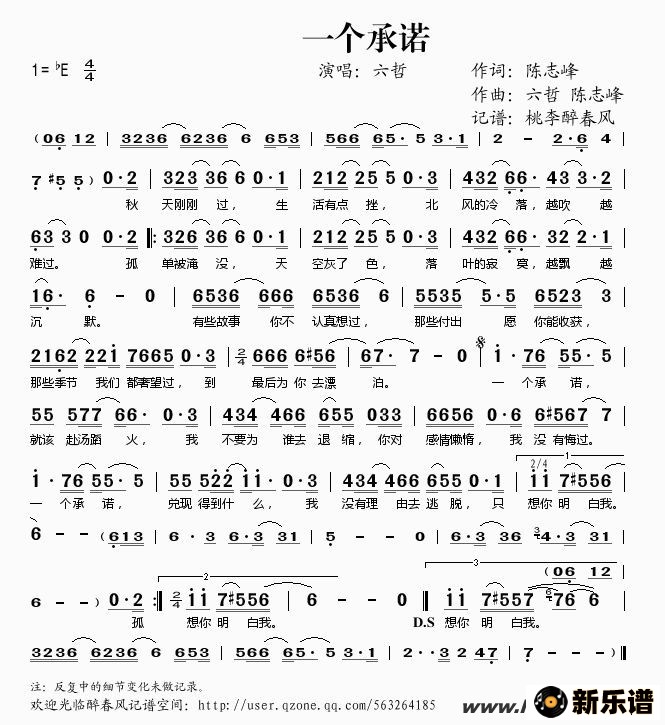 一个承诺
1= ♭E 4/4 演唱：六哲 作词：陈志峰
作曲：六哲 陈志峰
记谱：桃李醉春风
(06 12 | 3236 6236 6 653 | 566 65· 5 3·1 | 2 - 2·6 4
7 ♯5 5) 0·2 | 323 36 6 0·1 | 212 25 5 0·3 | 432 66· 43 3·2
秋 天刚刚 过，生 活有点 挫，北 风的冷 落，越吹 越
63 3 0 0·2 ‖: 326 36 6 0·1 | 212 25 5 0·3 | 432 66· 32 2·1
难过。 孤 单被淹 没，天 空灰了 色，落 叶的寂 寞，越飘 越
16· 6 - 0 | 6536 666 6536 6 | 5535 5·5 6523 3
沉 默。 有些故事 你不 认真想过，那些付出 愿 你能收获，
2162 221 7665 0·3 | 2/4 666 6♯56 | 67· 7 - 0 | 1·76 55·5
那些季节 我们 都奢望过，到 最后为 你 去漂 泊。 一 个 承 诺，
55 577 66· 0·3 | 434 466 655 033 | 6656 0·6 6♯567 7
就该 赴汤蹈 火，我 不要为 谁去 退 缩，你对 感情懒惰，我 没 有悔过。
1·76 55·5 | 55 522 11· 0·3 | 434 466 655 0·1 | 2/4 11 7♯556
一 个承 诺， 兑现 得到什 么，我 没有理 由去 逃 脱，只 想你 明 白我。
6 - - (613 | 6·3 6·3 31 | 5 - - 0 | 6·3 36 4·3 31
(06 12
6 - -) 0·2 :‖ 2/4 11 7♯556 | 6 - - 0 ‖ 11 7♯557 76 6
孤 想你 明 白我。 D.S 想你 明 白我。
3236 6236 6 653 | 566 65·5 3·1 | 2··3 2·47 | 6 - - 0) ‖
注：反复中的细节变化未做记录。
欢迎光临醉春风记谱空间：http://user.qzone.qq.com/563264185
新乐谱